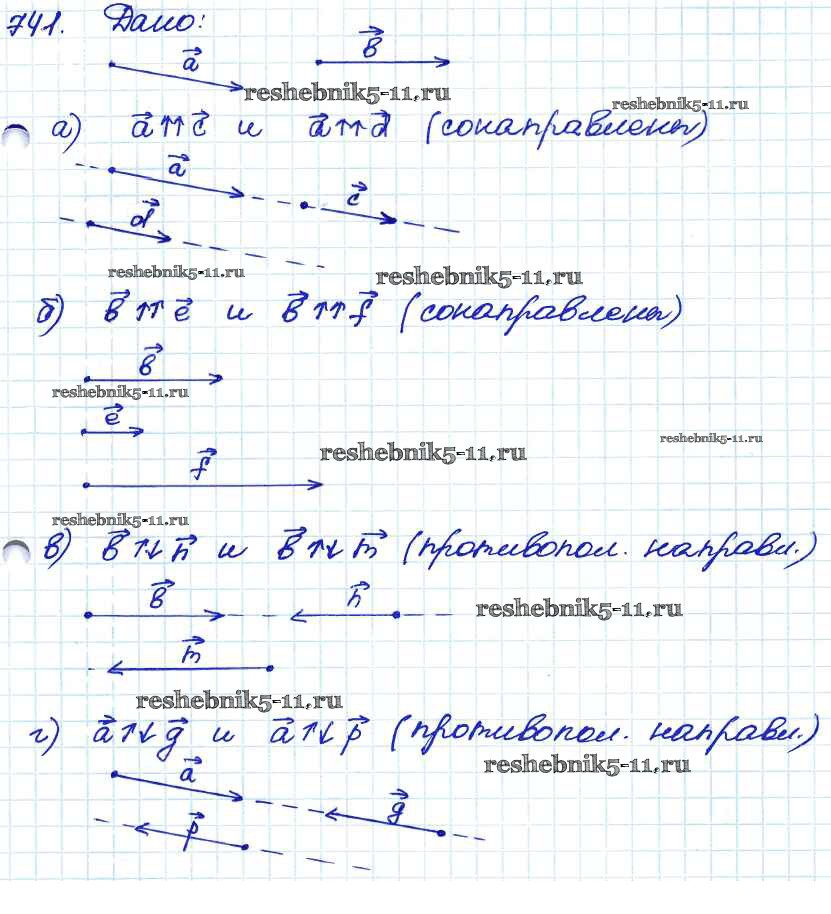 741. Дано:
a⃗ b⃗
reshebnik5-11.ru
reshebnik5-11.ru
а) a⃗↑↑c⃗ и a⃗↑↑d⃗ (сонаправлены)
a⃗
c⃗
d⃗
reshebnik5-11.ru reshebnik5-11.ru
б) b⃗↑↑e⃗ и b⃗↑↑f⃗ (сонаправлены)
b⃗
reshebnik5-11.ru
e⃗
reshebnik5-11.ru
reshebnik5-11.ru
f⃗
reshebnik5-11.ru
в) b⃗↑↓n⃗ и b⃗↑↓m⃗ (противопол. направл.)
b⃗ n⃗
reshebnik5-11.ru
m⃗
reshebnik5-11.ru
г) a⃗↑↓g⃗ и a⃗↑↓p⃗ (противопол. направл.)
reshebnik5-11.ru
a⃗
g⃗
p⃗